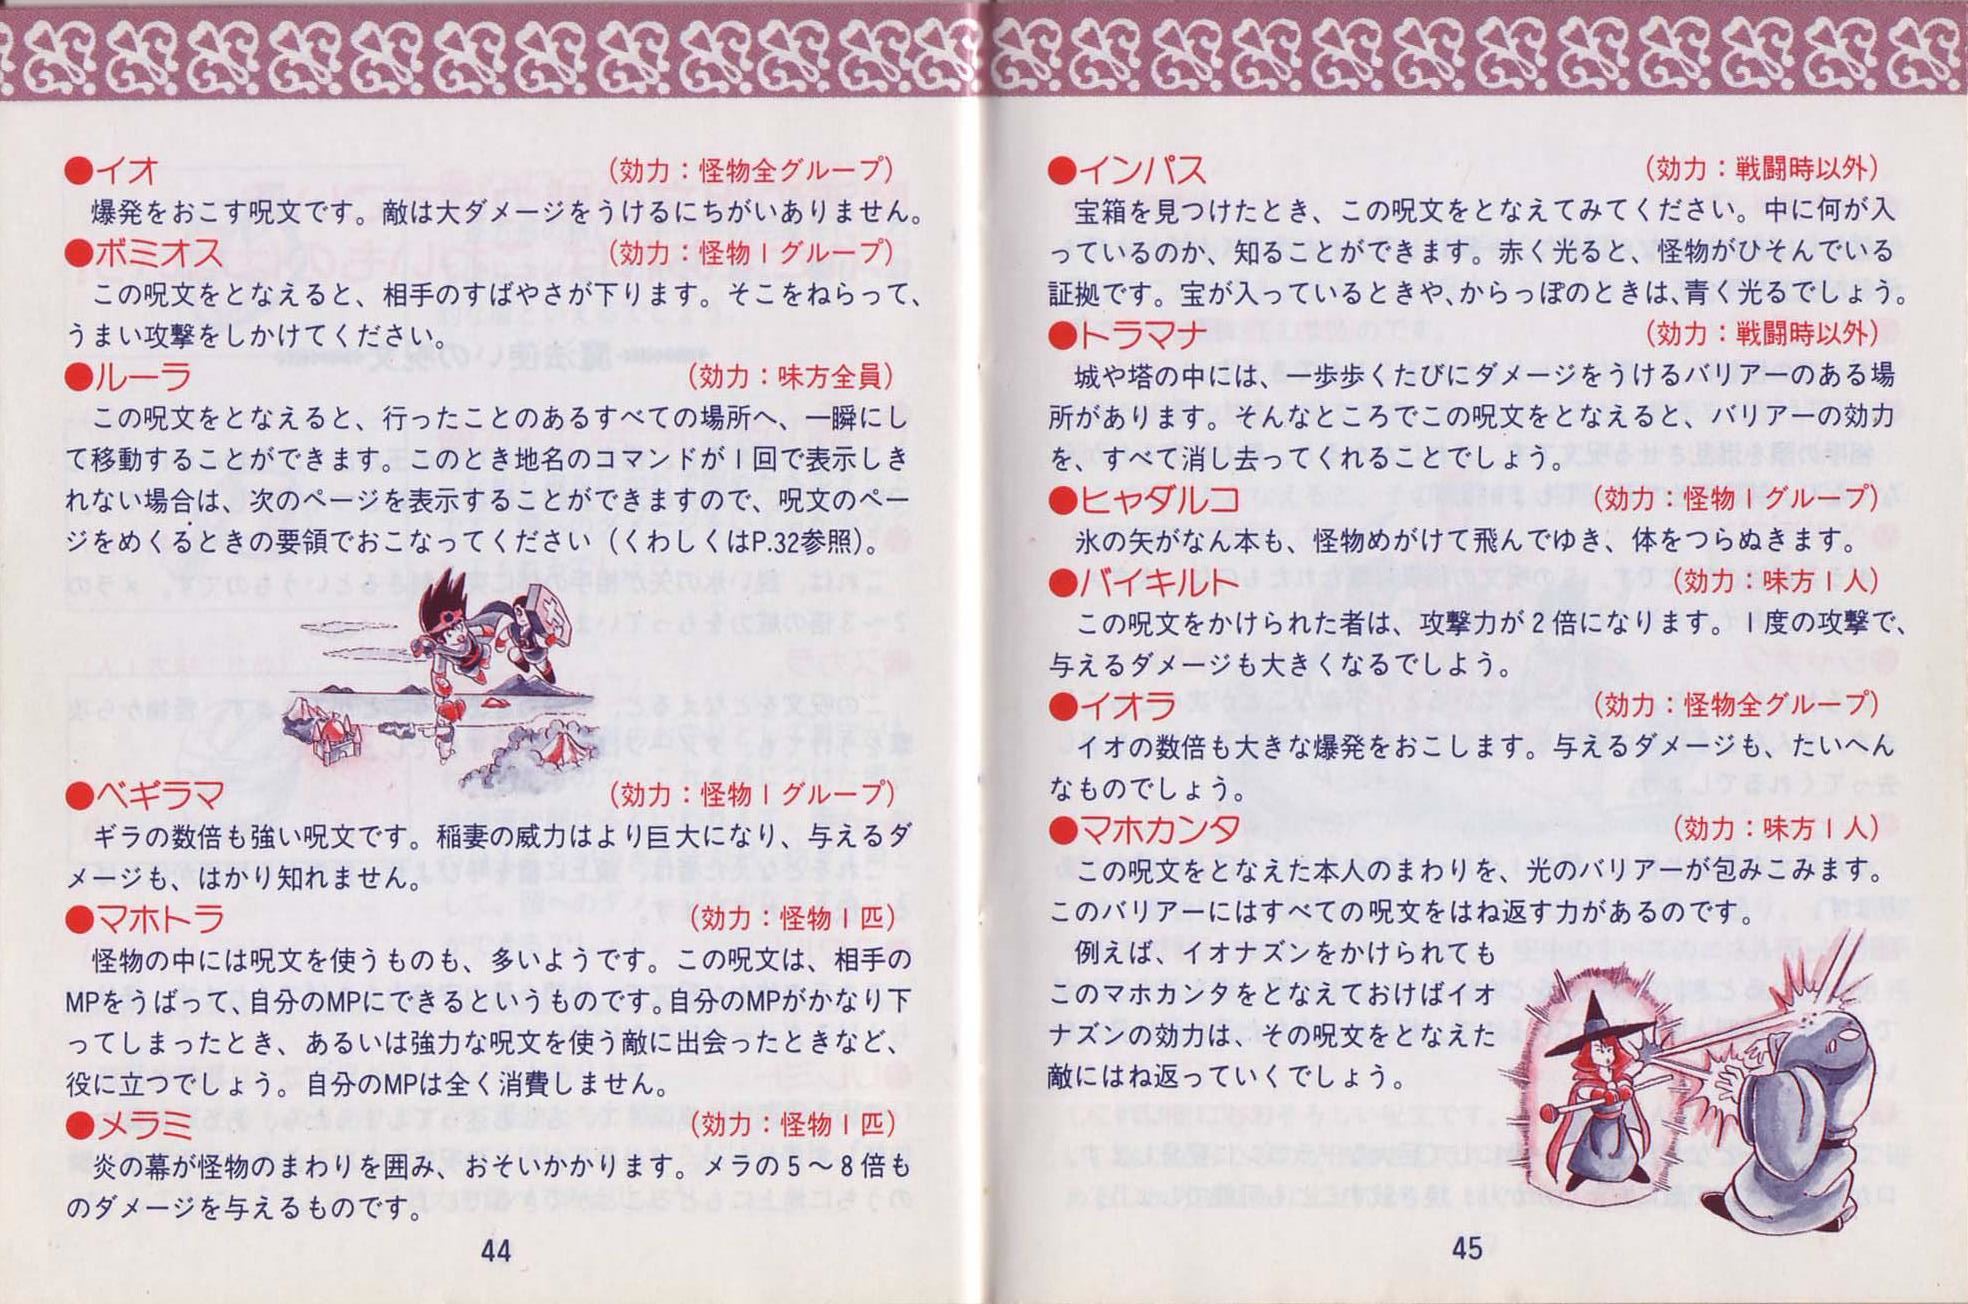 ●イオ (効力：怪物全グループ)
爆発をおこす呪文です。敵は大ダメージをうけるにちがいありません。
●ボミオス (効力：怪物1グループ)
この呪文をとなえると、相手のすばやさが下ります。そこをねらって、
うまい攻撃をしかけてください。
●ルーラ (効力：味方全員)
この呪文をとなえると、行ったことのあるすべての場所へ、一瞬にし
て移動することができます。このとき地名のコマンドが1回で表示しき
れない場合は、次のページを表示することができますので、呪文のペー
ジをめくるときの要領でおこなってください（くわしくはP.32参照）。
●ベギラマ (効力：怪物1グループ)
ギラの数倍も強い呪文です。稲妻の威力はより巨大になり、与えるダ
メージも、はかり知れません。
●マホトラ (効力：怪物1匹)
怪物の中には呪文を使うものも、多いようです。この呪文は、相手の
MPをうばって、自分のMPにできるというものです。自分のMPがかなり下
ってしまったとき、あるいは強力な呪文を使う敵に出会ったときなど、
役に立つでしょう。自分のMPは全く消費しません。
●メラミ (効力：怪物1匹)
炎の幕が怪物のまわりを囲み、おそいかかります。メラの5～8倍も
のダメージを与えるものです。
44
●インパス (効力：戦闘時以外)
宝箱を見つけたとき、この呪文をとなえてみてください。中に何が入
っているのか、知ることができます。赤く光ると、怪物がひそんでいる
証拠です。宝が入っているときや、からっぽのときは、青く光るでしょう。
●トラマナ (効力：戦闘時以外)
城や塔の中には、一歩歩くたびにダメージをうけるバリアーのある場
所があります。そんなところでこの呪文をとなえると、バリアーの効力
を、すべて消し去ってくれることでしょう。
●ヒャダルコ (効力：怪物1グループ)
氷の矢がなん本も、怪物めがけて飛んでゆき、体をつらぬきます。
●バイキルト (効力：味方1人)
この呪文をかけられた者は、攻撃力が2倍になります。1度の攻撃で、
与えるダメージも大きくなるでしょう。
●イオラ (効力：怪物全グループ)
イオの数倍も大きな爆発をおこします。与えるダメージも、たいへん
なものでしょう。
●マホカンタ (効力：味方1人)
この呪文をとなえた本人のまわりを、光のバリアーが包みこみます。
このバリアーにはすべての呪文をはね返す力があるのです。
例えば、イオナズンをかけられても
このマホカンタをとなえておけばイオ
ナズンの効力は、その呪文をとなえた
敵にはね返っていくでしょう。
45